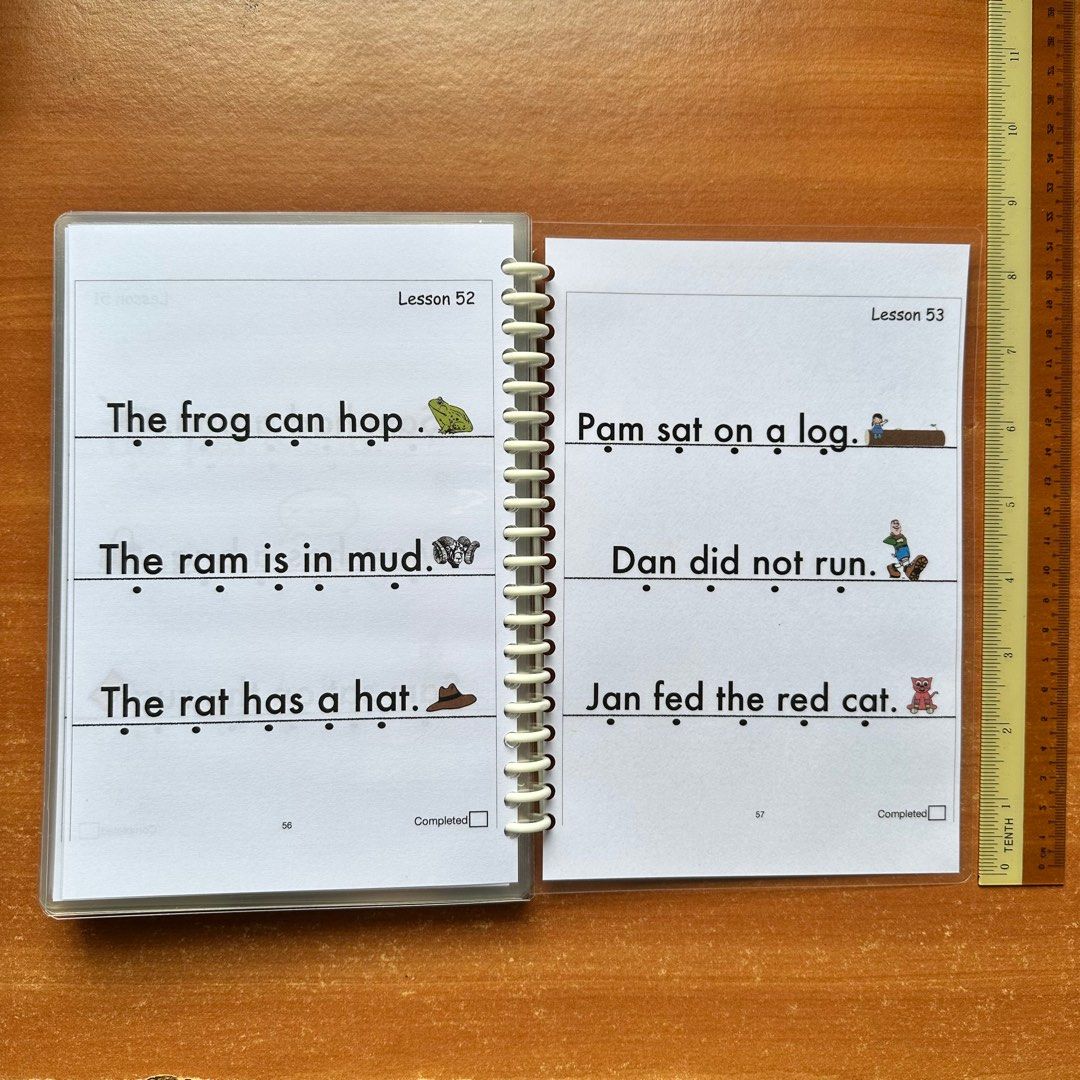 Lesson 52
The frog can hop .
The ram is in mud.
The rat has a hat.
56
Completed
Lesson 53
Pam sat on a log.
Dan did not run.
Jan fed the red cat.
57
Completed
11
10
9
8
7
6
5
4
3
2
1
0 TENTH